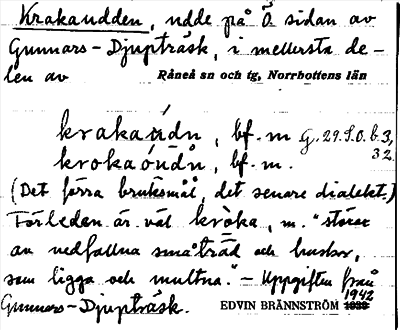 Krakaudden, udde på Ö. sidan av
Gunnars-Djupträsk, i mellersta de-
len av Råneå sn och tg, Norrbottens län
krakaúdn, bf. m G. 29. S. O. b. 3,
32.
krokaóudn, bf. m.
(Det förra bruksmål, det senare dialekt.)
Förleden är väl kròka, m. "stórar
av nedfallna småträd och buskar,
som ligga och multna." - Uppgiften från
Gunnars-Djupträsk. EDVIN BRÄNNSTRÖM 1942